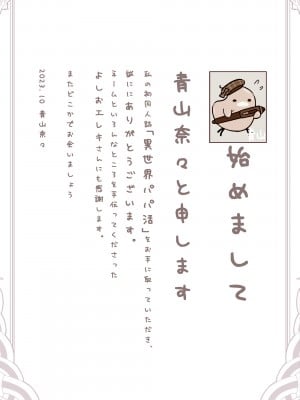 始めまして
青山奈々と申します
私の初同人誌「異世界パパ活」をお手に取っていただき、
誠にありがとうございます。
ネームといろんなところを手伝ってくださった
よしおエレキさんにも感謝します。
またどこかでお会いましょう
2023.10 青山奈々
青山